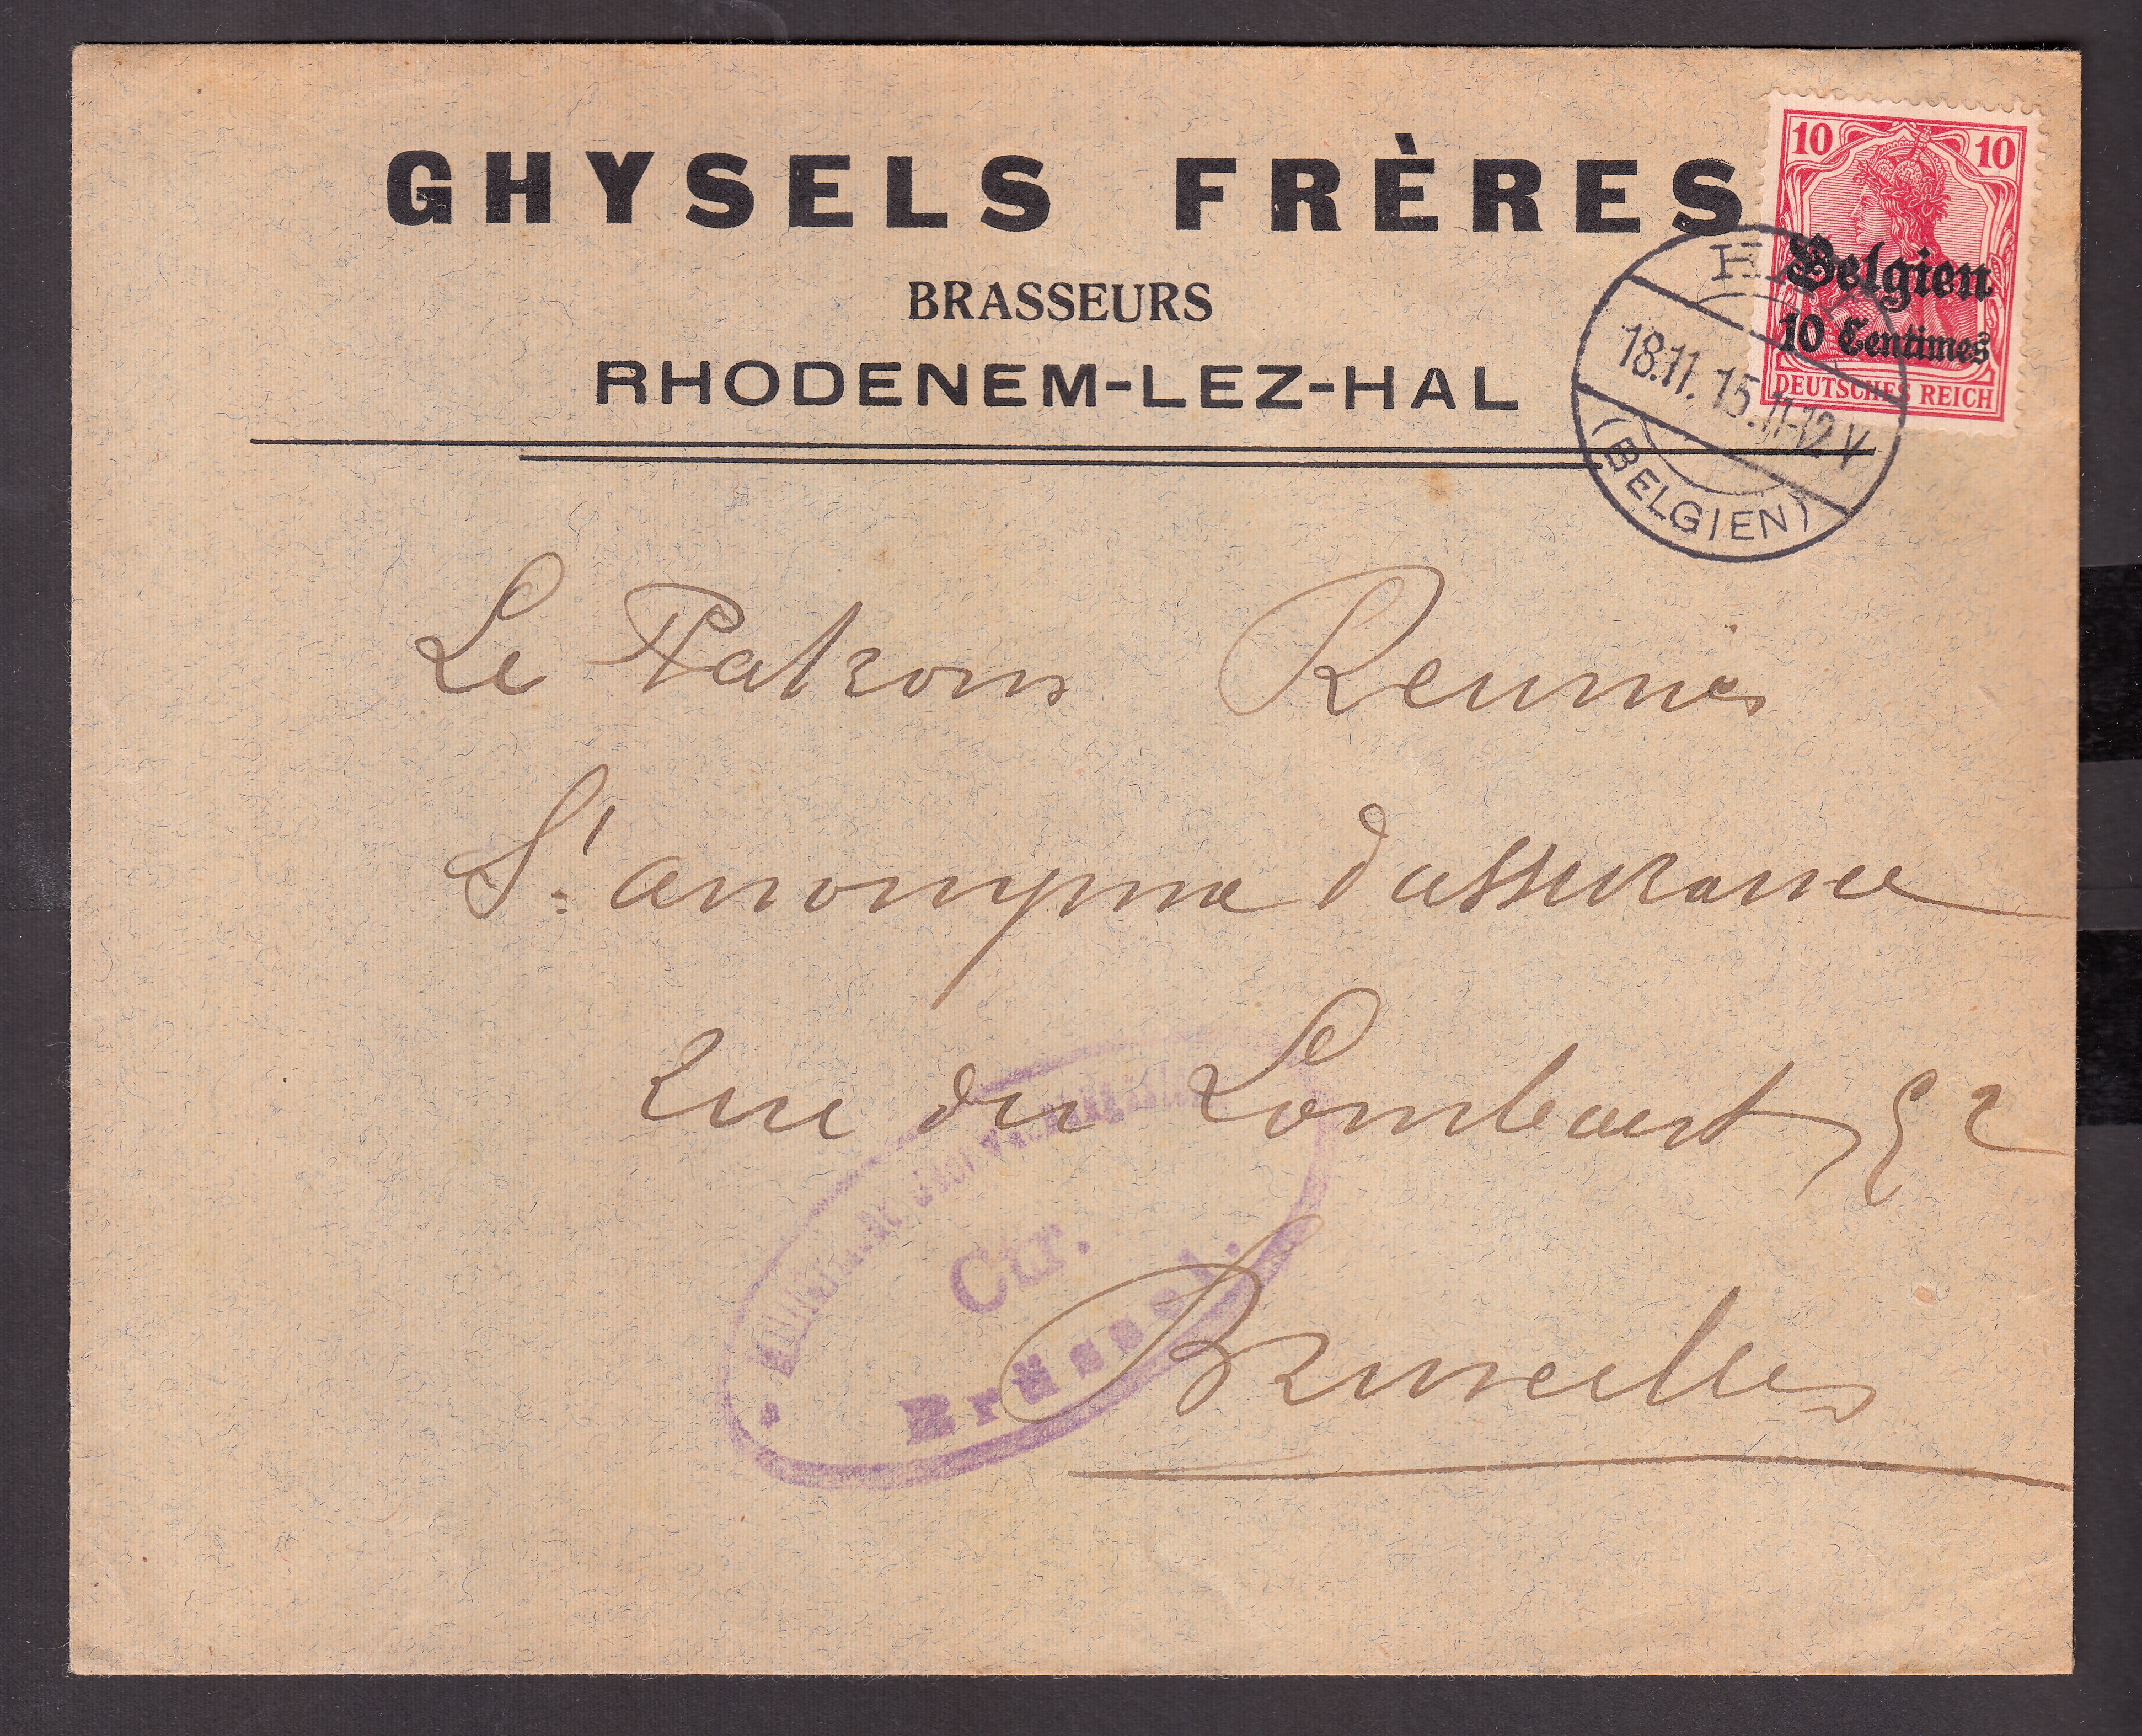 GHYSELS FRÈRES
BRASSEURS
RHODENEM-LEZ-HAL
10 10
Belgien
10 Centimes
DEUTSCHES REICH
18.11.15.11-12 V
(BELGIEN)
Le Patrons Reunies
St. anonyme d'assurance
rue du Lombaert, 52
Ctr.
Brüssel.
Bruxelles